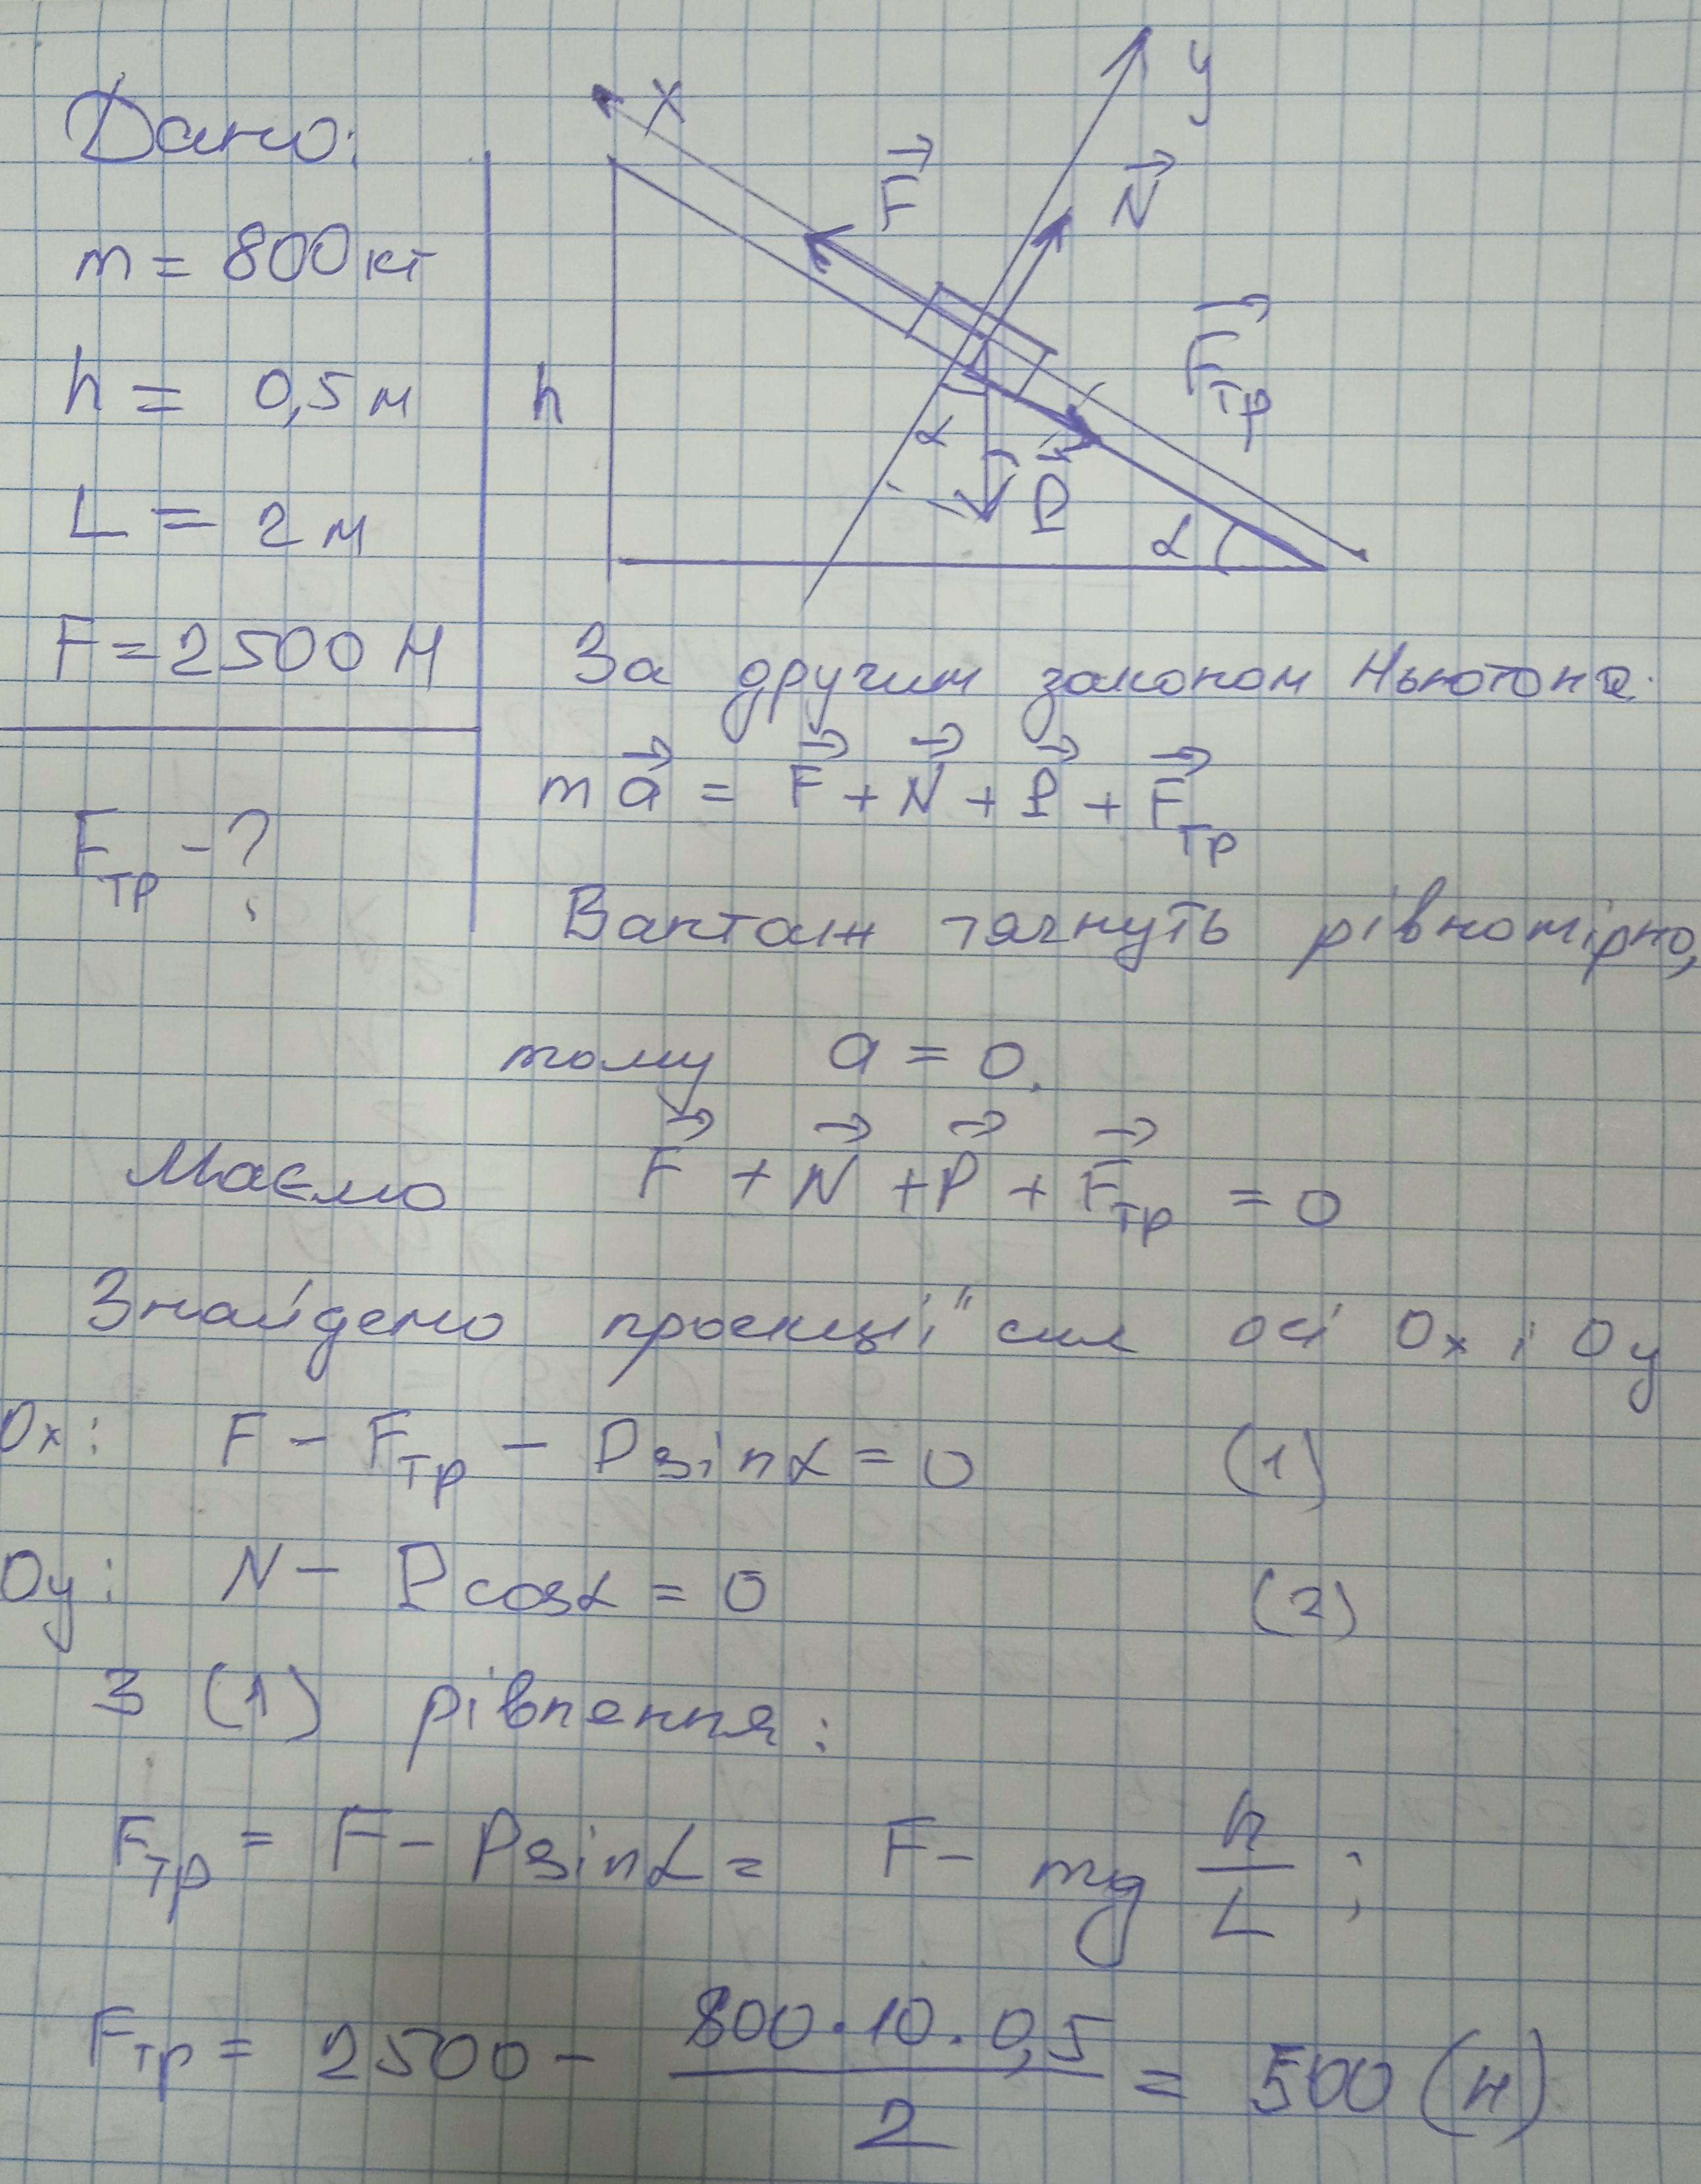 Дано:
m = 800 кг
h = 0,5 м
L = 2 м
F = 2500 Н
Fтр - ?
x
y
F
N
Fтр
h
α
P
α
За другим законом Ньютона.
ma = F + N + P + Fтр
Вантаж тягнуть рівномірно,
тому a = 0.
Маємо F + N + P + Fтр = 0
Знайдемо проекції сил осі Ox і Oy
Ox: F - Fтр - P sin α = 0 (1)
Oy: N - P cos α = 0 (2)
З (1) рівняння:
Fтр = F - P sin α = F - mg h/L ;
Fтр = 2500 - 800·10·0,5/2 = 500 (Н)